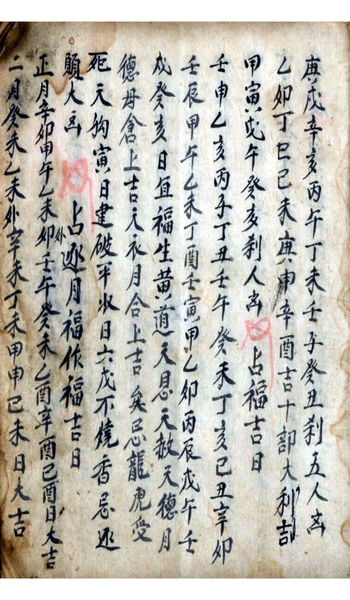 庚戌辛亥丙午丁未壬子癸丑刹五人凶
乙卯丁巳己未庚申辛酉吉十部大利吉
甲寅戊午癸亥刹人凶 占福吉日
壬申乙亥丙子丁丑壬午癸未丁亥己丑辛卯
壬辰甲午乙未丁酉壬寅甲乙卯丙辰戊午壬
戌癸亥日宜福生黄道天恩天赦天德月
德母倉上吉元衣月合上吉 矣忌龍虎受
死天狗寅日建破平收日六戊不燒香忌逐
願大凶 占逐月福伏福吉日
正月辛卯甲午乙未卯外壬午癸未乙酉辛酉己酉日大吉
二月癸未乙未外辛未丁未甲申己未日大吉